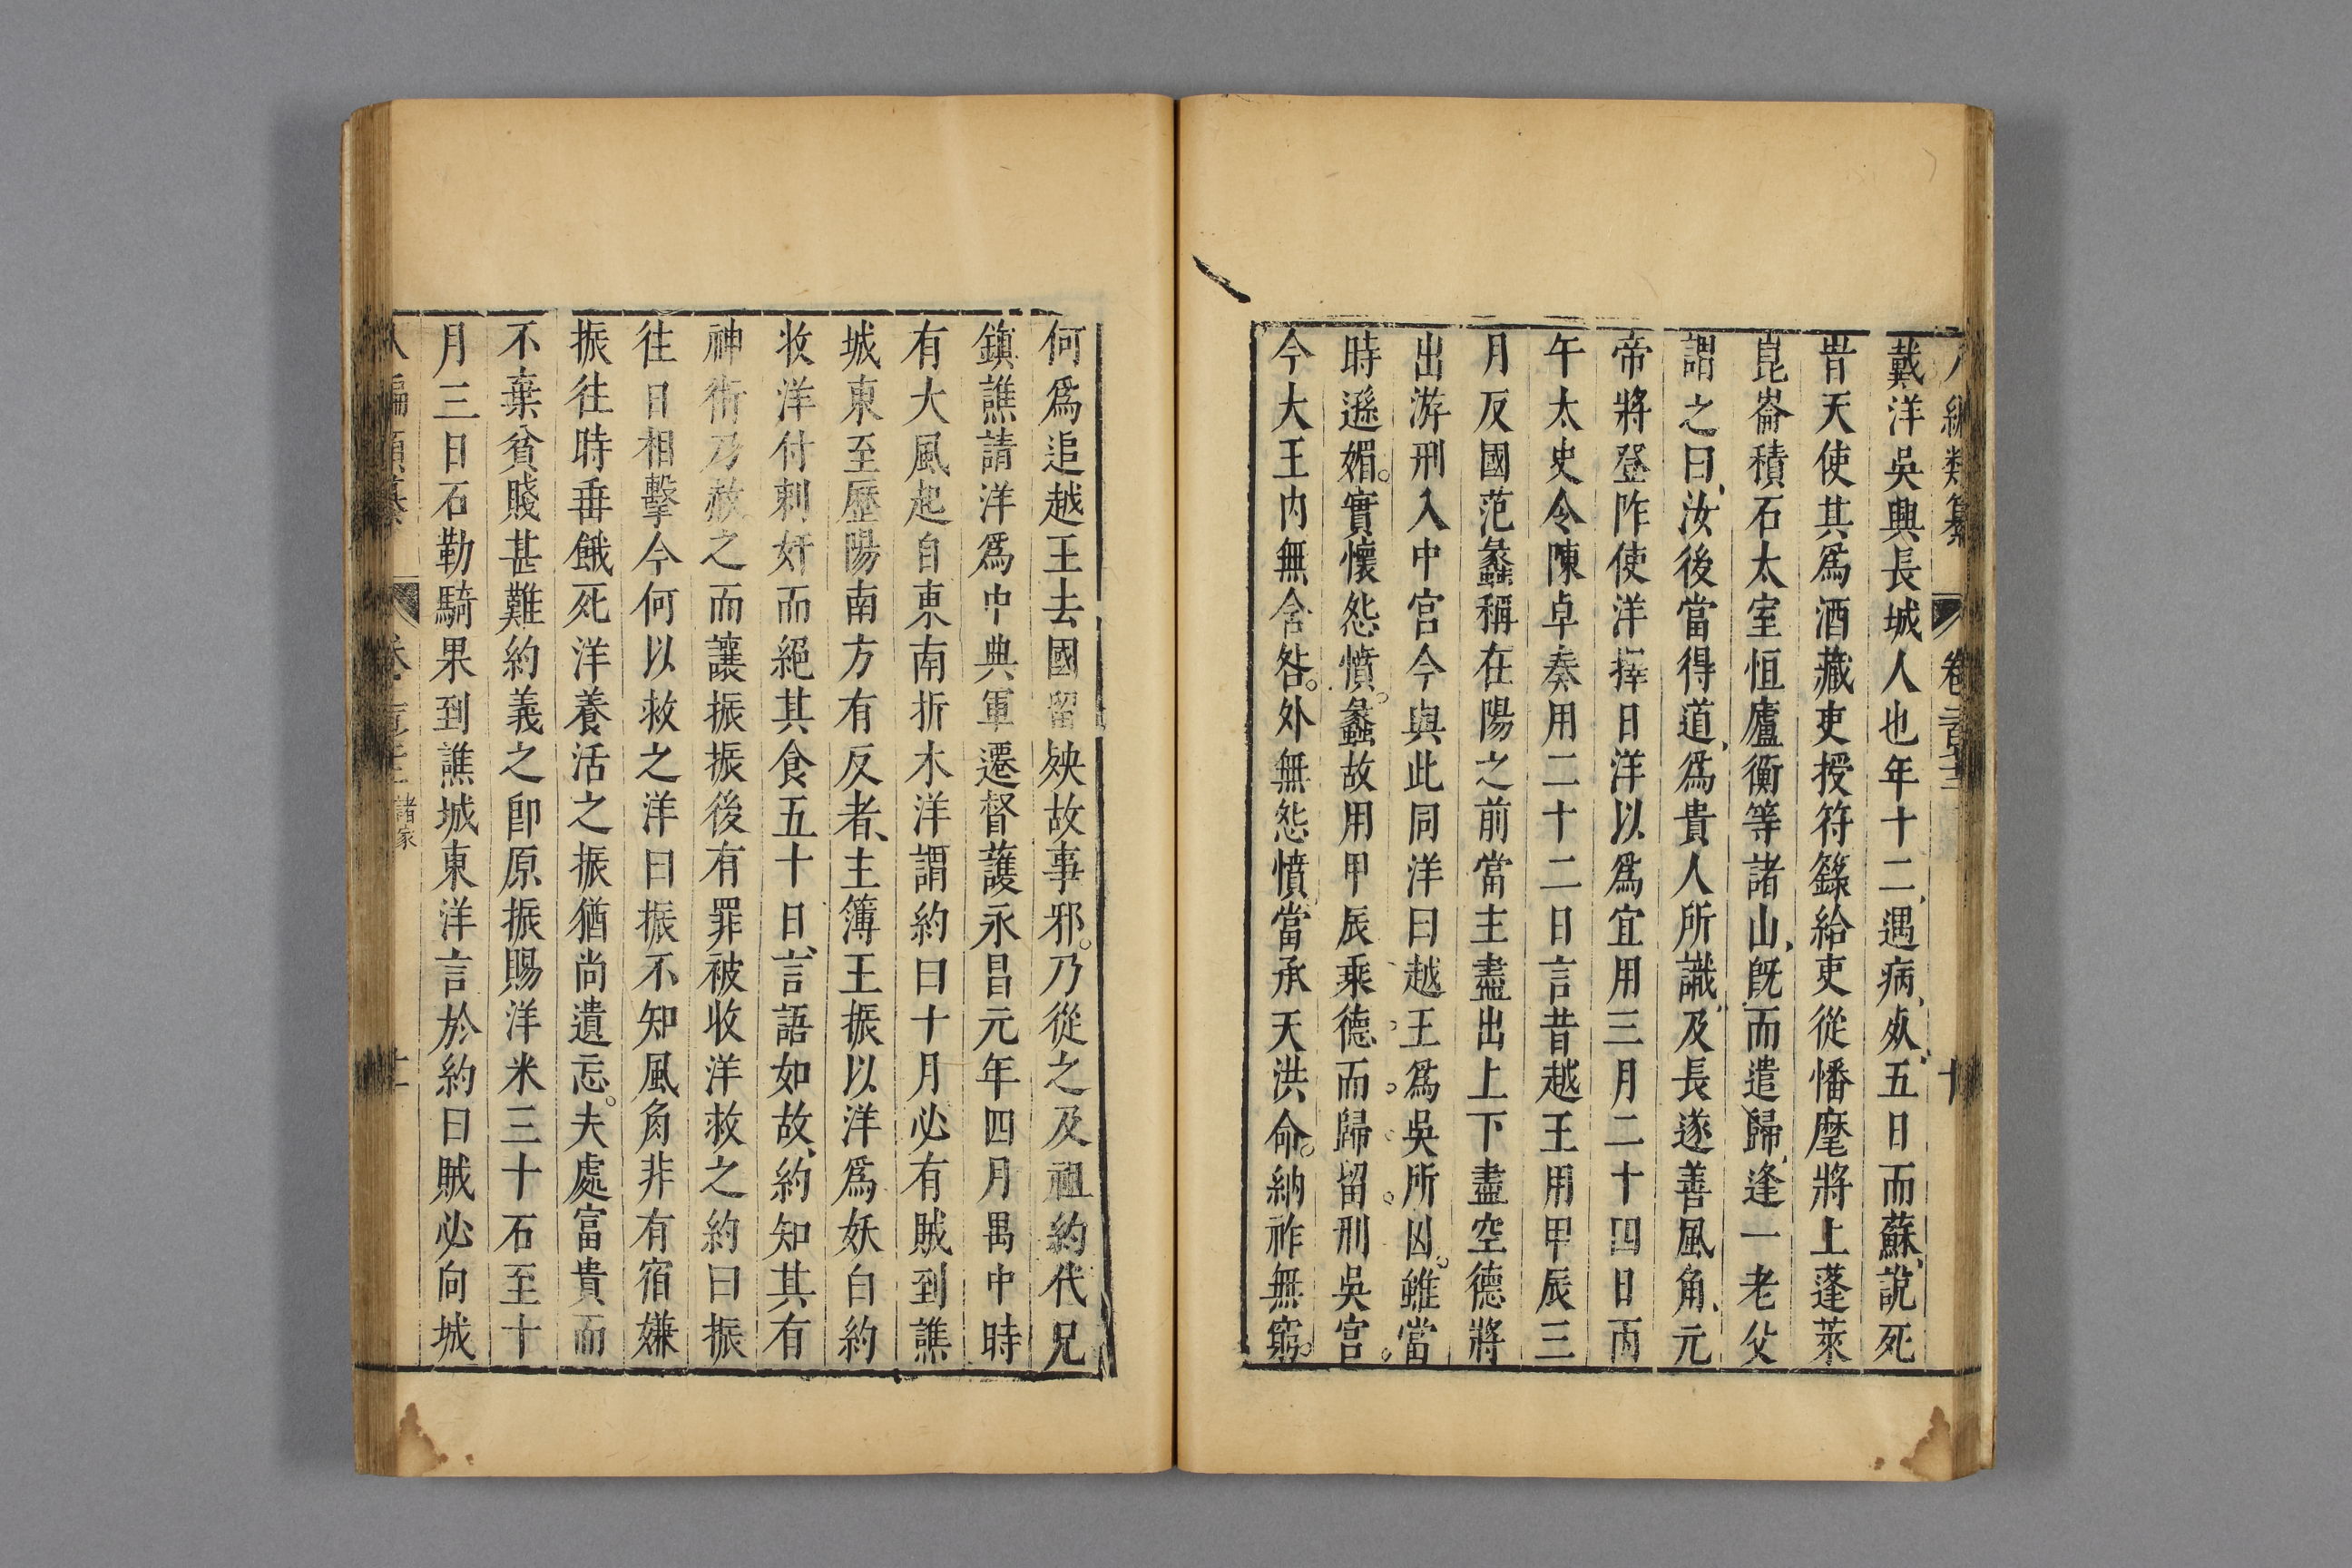 八編類纂 卷一百三十三 十
戴洋吳興長城人也年十二遇病死五日而蘇說死
旹天使其爲酒藏吏授符籙給吏從幡麾將上蓬萊
崑崙積石太室恒廬衡等諸山旣而遣歸逢一老父
謂之曰汝後當得道爲貴人所識及長遂善風角元
帝將登阼使洋擇日洋以爲宜用三月二十四日丙
午太史令陳卓奏用二十二日言昔越王用甲辰三
月反國范蠡稱在陽之前當主盡出上下盡空德將
出游刑入中宮今與此同洋曰越王爲吳所囚雖當
時遜媚實懷怨憤蠡故用甲辰乘德而歸留刑吳宮
今大王內無含咎外無怨憤當承天洪命納祚無窮
何爲追越王去國留殃故事邪乃從之及祖約代兄
鎮譙請洋爲中典軍遷督護永昌元年四月禺中時
有大風起自東南折木洋謂約曰十月必有賊到譙
城東至歷陽南方有反者主簿王振以洋爲妖白約
收洋付刺奸而絕其食五十日言語如故約知其有
神術乃赦之而讓振振後有罪被收洋救之約曰振
往日相擊今何以救之洋曰振不知風角非有宿嫌
振往時垂餓死洋養活之振猶尚遺忘夫處富貴而
不棄貧賤甚難約義之卽原振賜洋米三十石至十
月三日石勒騎果到譙城東洋言於約曰賊必向城
八編類纂 卷 諸家 十一